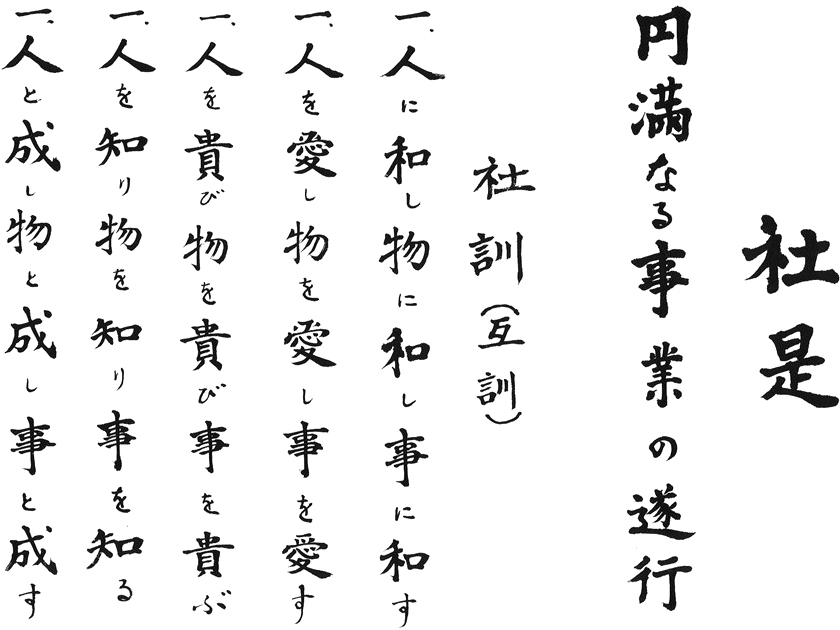 社是
円満なる事業の遂行
社訓(互訓)
一、人に和し物に和し事に和す
一、人を愛し物を愛し事を愛す
一、人を貴び物を貴び事を貴ぶ
一、人を知り物を知り事を知る
一、人と成し物と成し事と成す